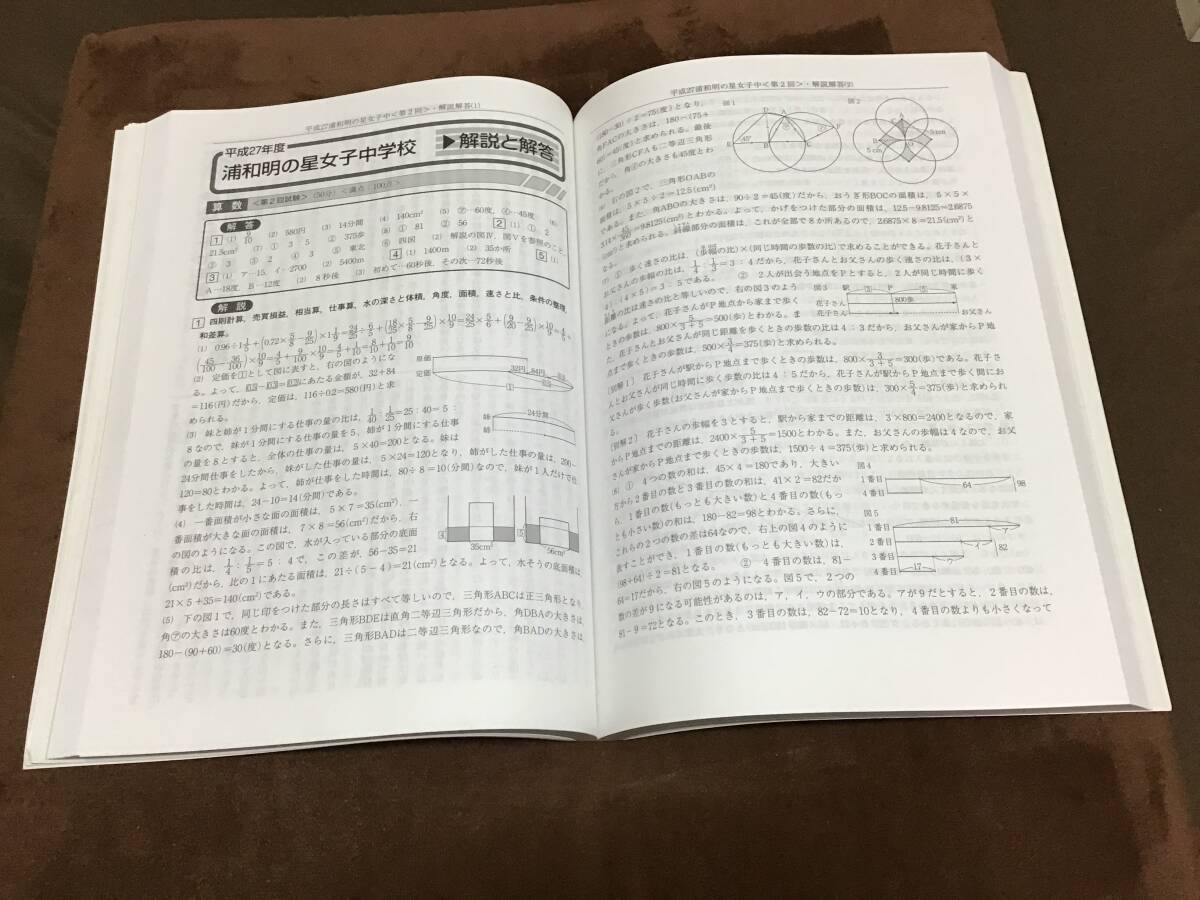 平成27浦和明の星女子中<第2回>・解説解答(1)
平成27年度
浦和明の星女子中学校
▶解説と解答
算数 <第2回試験> (50分) <満点：100点>
解答
1 (1) 9/10 (2) 580円 (3) 14分間 (4) 140cm² (5) ㋐…60度, ㋑…45度 (6)
21.5cm² (7) ① 3：5 ② 375歩 (8) ① 81 ② 56 2 (1) ① 2
② 3 ③ 2 ④ 3 ⑤ 東北 ⑥ 四国 (2) 解説の図Ⅳ, 図Ⅴを参照のこと。
3 (1) ア…15, イ…2700 (2) 5400m 4 (1) 1400m (2) 35か所 5 (1)
A…18度, B…12度 (2) 8秒後 (3) 初めて…60秒後, その次…72秒後
解説
1 四則計算，売買損益，相当算，仕事算，水の深さと体積，角度，面積，速さと比，条件の整理，
和差算。
(2) 定価を1として図に表すと，右の図のようにな
る。よって，にあたる金額が，32＋84
＝116(円)だから，定価は，116÷0.2＝580(円)と求
められる。
原価
定価
32円 84円
(3) 妹と姉が1分間にする仕事の量の比は，1/40：1/25＝25：40＝5：
8なので，妹が1分間にする仕事の量を5，姉が1分間にする仕事
の量を8とすると，全体の仕事の量は，5×40＝200となる。妹は
24分間仕事をしたから，妹がした仕事の量は，5×24＝120となり，姉がした仕事の量は，200－
120＝80とわかる。よって，姉が仕事をした時間は，80÷8＝10(分間)なので，妹が1人だけで仕
事をした時間は，24－10＝14(分間)である。
24分間
妹
姉
(4) 一番面積が小さな面の面積は，5×7＝35(cm²)，一
番面積が大きな面の面積は，7×8＝56(cm²)だから，右
の図のようになる。この図で，水が入っている部分の底面
積の比は，1/4：1/5＝5：4で，この差が，56－35＝21
(cm²)だから，比の1にあたる面積は，21÷(5－4)＝21(cm²)となる。よって，水そうの底面積は，
21×5＋35＝140(cm²)である。
4 35cm² 5 56cm²
(5) 下の図1で，同じ印をつけた部分の長さはすべて等しいので，三角形ABCは正三角形となり，
角㋐の大きさは60度とわかる。また，三角形BDEは直角二等辺三角形だから，角DBAの大きさは
180－(90＋60)＝30(度)となる。さらに，三角形BADは二等辺三角形なので，角BADの大きさは
平成27浦和明の星女子中<第2回>・解説解答(2)
(180－30)÷2＝75(度)となり，
角FACの大きさは，180－(75＋
60)＝45(度)と求められる。最後
に，三角形CFAも二等辺三角形
だから，角㋑の大きさも45度とわ
かる。
図1
45°
D A F
E B C
図2
5cm
5cm
(6) 右の図2で，三角形OABの
面積は，5×5÷2＝12.5(cm²)
である。また，角ABOの大きさは，90÷2＝45(度)だから，おうぎ形BOCの面積は，5×5×
3.14×45/360＝9.8125(cm²)とわかる。よって，かげをつけた部分の面積は，12.5－9.8125＝2.6875
(cm²)と求められる。斜線部分の面積は，これが全部で8か所あるので，2.6875×8＝21.5(cm²)と
なる。
(7) ① 歩く速さの比は，(歩幅の比)×(同じ時間の歩数の比)で求めることができる。花子さんと
お父さんの歩幅の比は，1/4：1/3＝3：4だから，花子さんとお父さんの歩く速さの比は，(3×
4)：(4×5)＝3：5である。 ② 2人が出会う地点をPとすると，2人が同じ時間に歩く
距離の比は速さの比と等しいので，右の図3のよう
になる。よって，花子さんがP地点から家まで歩く
ときの歩数は，800×5/(3＋5)＝500(歩)とわかる。ま
た，花子さんとお父さんが同じ距離を歩くときの歩数の比は4：3だから，お父さんが家からP地
点まで歩くときの歩数は，500×3/4＝375(歩)と求められる。
図3 駅 ③ P ⑤ 家
花子さん 800歩
花子さん お父さん
(別解1) 花子さんが駅からP地点まで歩くときの歩数は，800×3/(3＋5)＝300(歩)である。花子さ
んとお父さんが同じ時間に歩く歩数の比は4：5だから，花子さんが駅からP地点まで歩く間にお
父さんが歩く歩数(お父さんが家からP地点まで歩くときの歩数)は，300×5/4＝375(歩)と求められ
る。
(別解2) 花子さんの歩幅を3とすると，駅から家までの距離は，3×800＝2400となるので，家
からP地点までの距離は，2400×5/(3＋5)＝1500とわかる。また，お父さんの歩幅は4なので，お父
さんが家からP地点まで歩くときの歩数は，1500÷4＝375(歩)と求められる。
(8) ① 4つの数の和は，45×4＝180であり，大きい
方から2番目の数と3番目の数の和は，41×2＝82だか
ら，1番目の数(もっとも大きい数)と4番目の数(もっ
とも小さい数)の和は，180－82＝98とわかる。さらに，
これらの2つの数の差は64なので，右上の図4のように
表すことができ，1番目の数(もっとも大きい数)は，
(98＋64)÷2＝81となる。 ② 4番目の数は，81－
64＝17だから，右の図5のようになる。図5で，2つの
数の差が9になる可能性があるのは，ア，イ，ウの部分である。アが9だとすると，2番目の数は，
81－9＝72となる。このとき，3番目の数は，82－72＝10となり，4番目の数よりも小さくなって
図4
1番目
4番目
64
98
図5
81
1番目
2番目
3番目
4番目
ア
イ
ウ
17
82